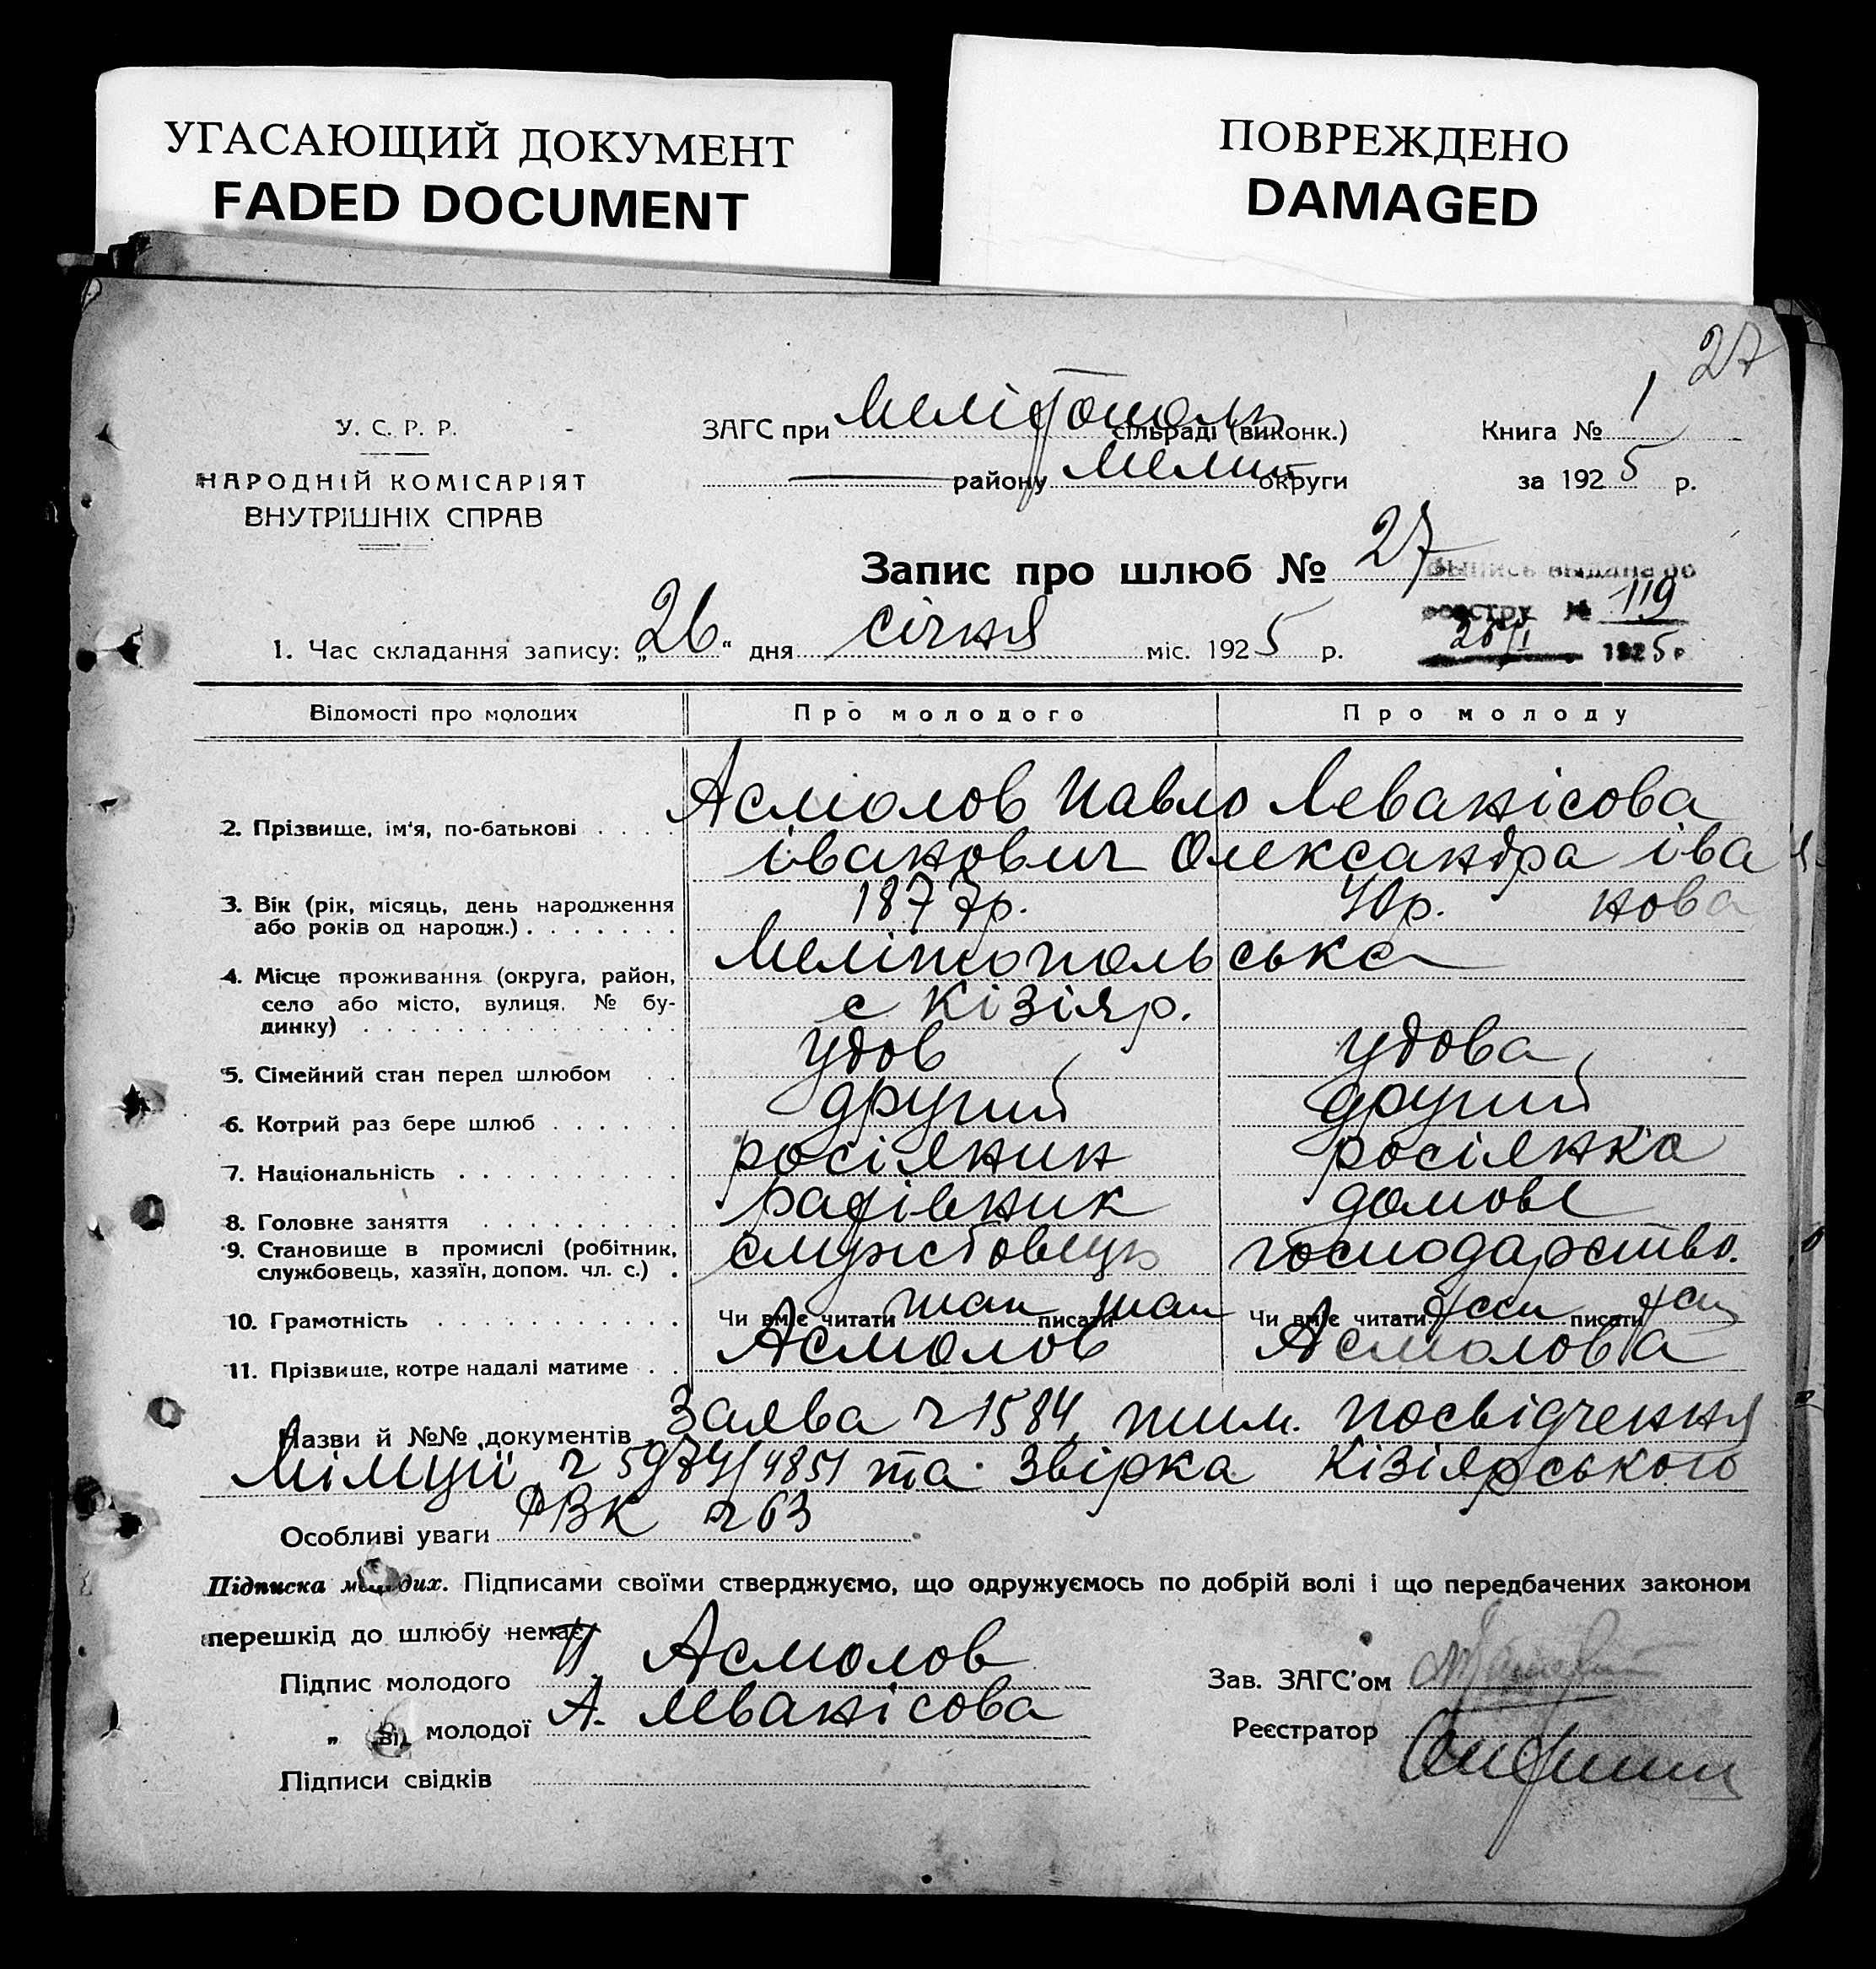 УГАСАЮЩИЙ ДОКУМЕНТ
FADED DOCUMENT
ПОВРЕЖДЕНО
DAMAGED
27
У. С. Р. Р.
НАРОДНІЙ КОМІСАРІЯТ
ВНУТРІШНІХ СПРАВ
ЗАГС при Мелітополь сільраді (виконк.)
району Мелит округи
Книга № 1
за 1925 р.
Запис про шлюб № 27
Выпись выдана по
реестру № 119
26/I 1925 р
1. Час складання запису: „26" дня січня міс. 1925 р.
Відомості про молодих Про молодого Про молоду
2. Прізвище, ім'я, по-батькові Асмолов Павло Леванісова
івакович Олександра іва
нова
3. Вік (рік, місяць, день народження 1877р. 40р.
або років од народж.)
4. Місце проживання (округа, район, Мелітопольська
село або місто, вулиця, № бу- с Кізіяр.
динку)
5. Сімейний стан перед шлюбом удов удова
6. Котрий раз бере шлюб другий другий
7. Національність росіянин росіянка
8. Головне заняття домове
9. Становище в промислі (робітник, службовець господарство.
службовець, хазяїн, допом. чл. с.)
10. Грамотність Чи вміє читати так писати так Чи вміє читати писати
11. Прізвище, котре надалі матиме Асмолов Асмолова
Назви й №№ документів Заява ч 1584, тим. посвідчення
Міліції ч 5974/4851 та Звірка Кізіярського
Особливі уваги РВК ч 63
Підписка молодих. Підписами своїми стверджуємо, що одружуємось по добрій волі і що передбачених законом
перешкід до шлюбу немає.
Підпис молодого П Асмолов
Зав. ЗАГС'ом
„ молодої А. Леванісова
Реєстратор
Підписи свідків